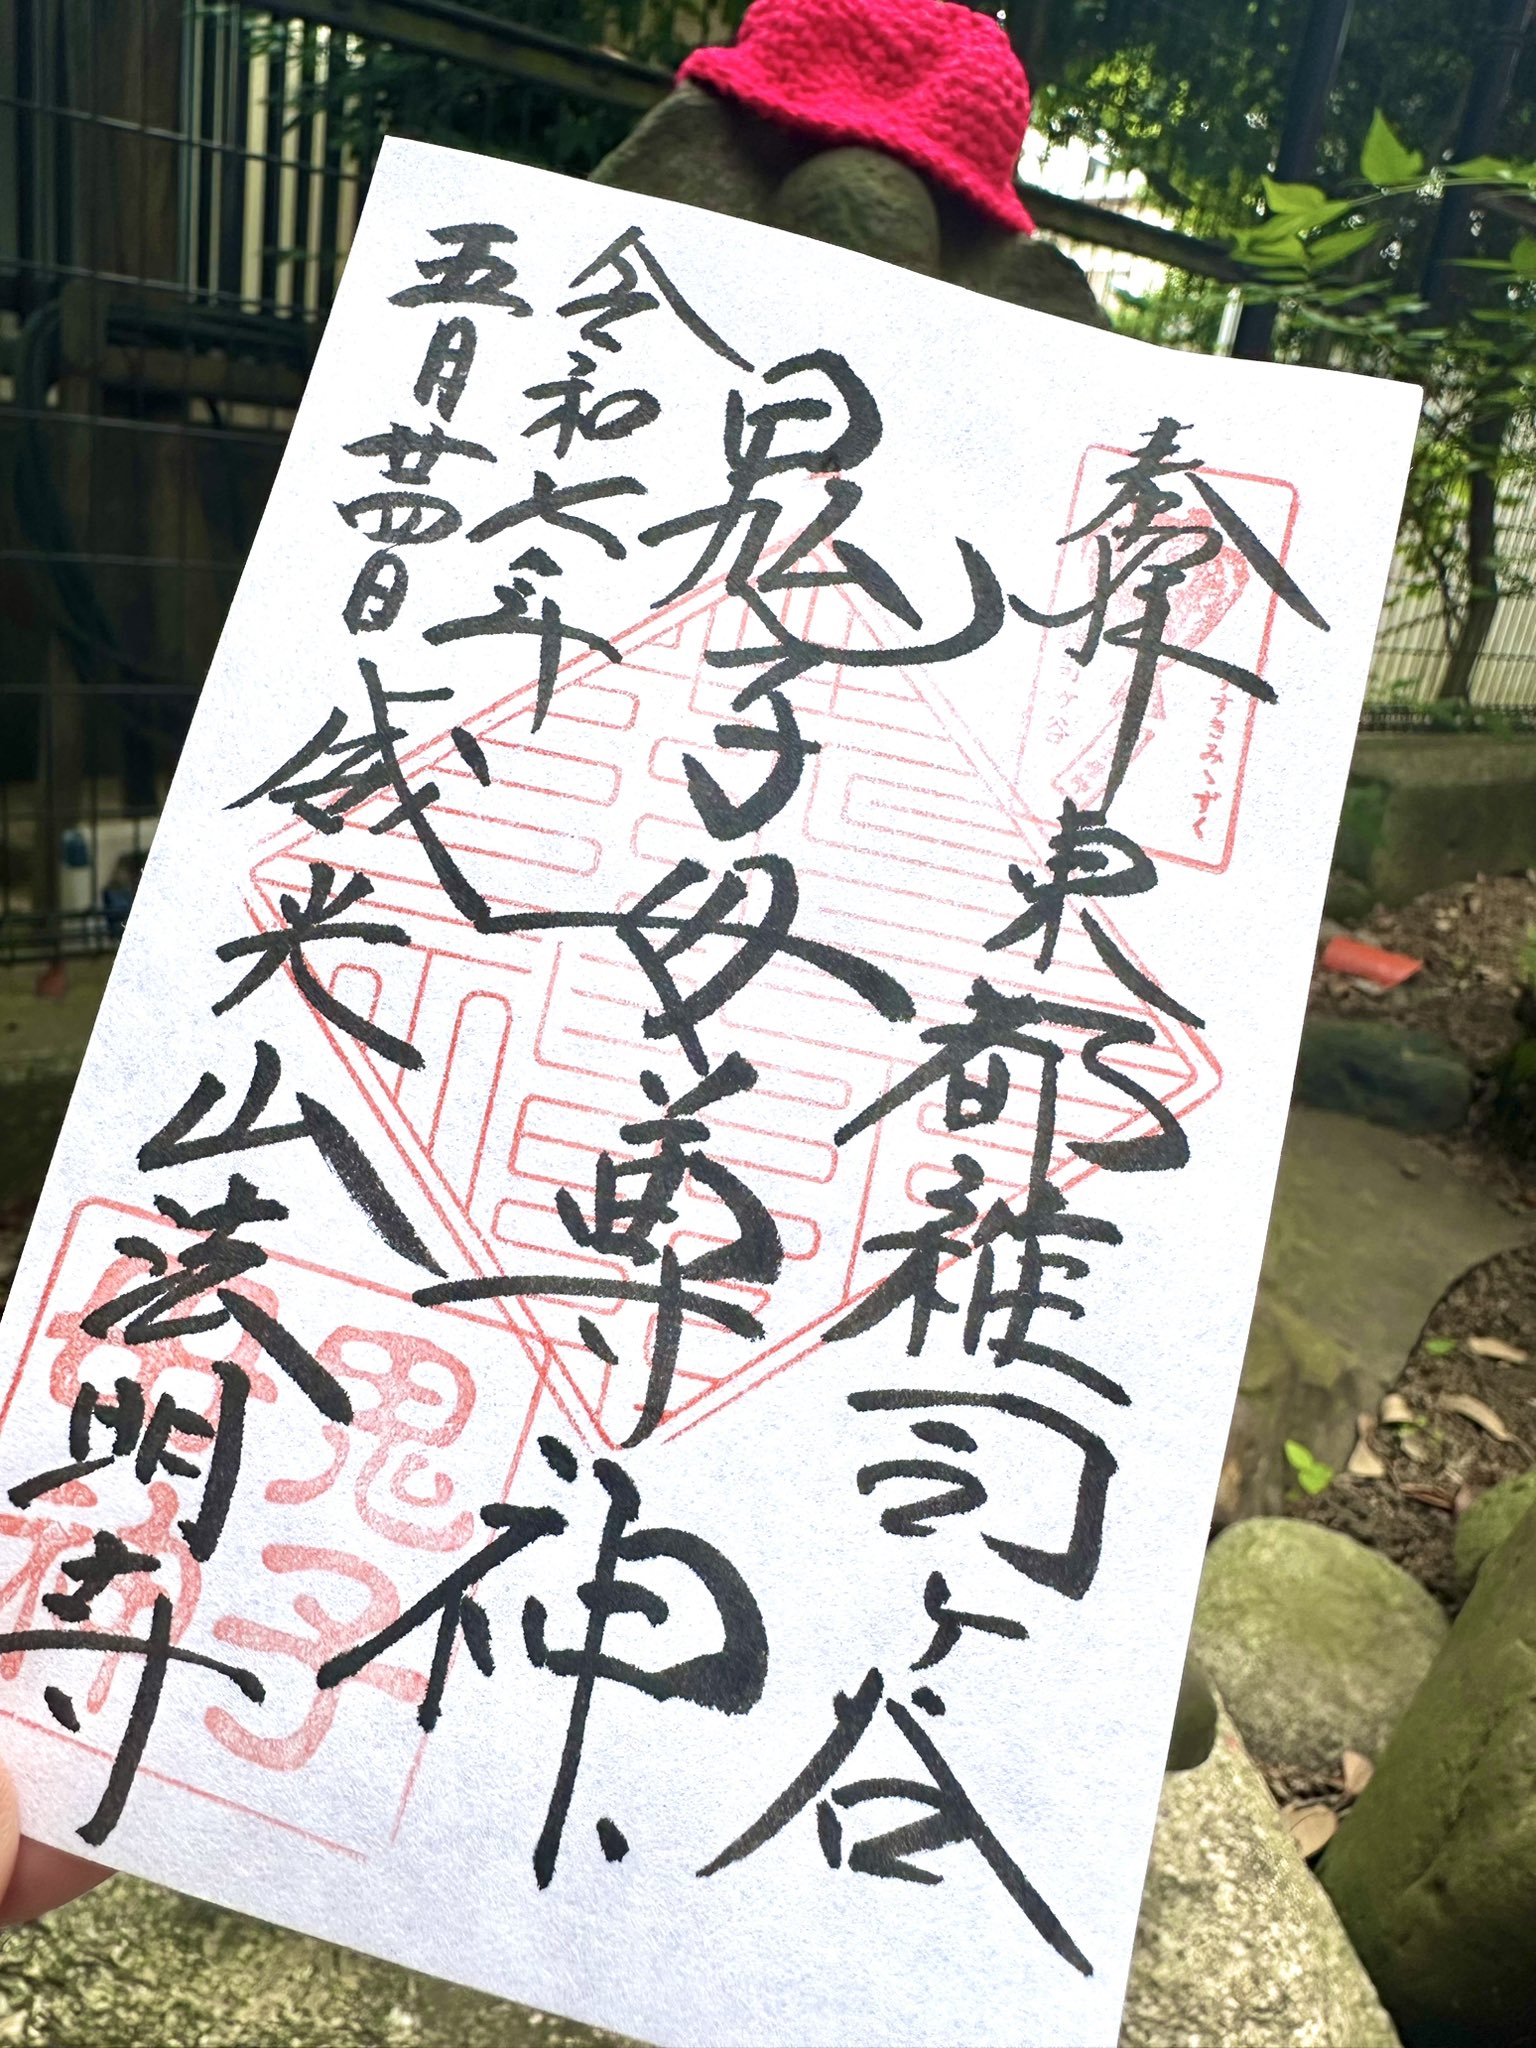 奉拝
東都雑司ヶ谷
鬼子母尊神
令和七年
五月廿四日
威光山法明寺
すすきみゝずく
司ケ谷
鬼子
母神